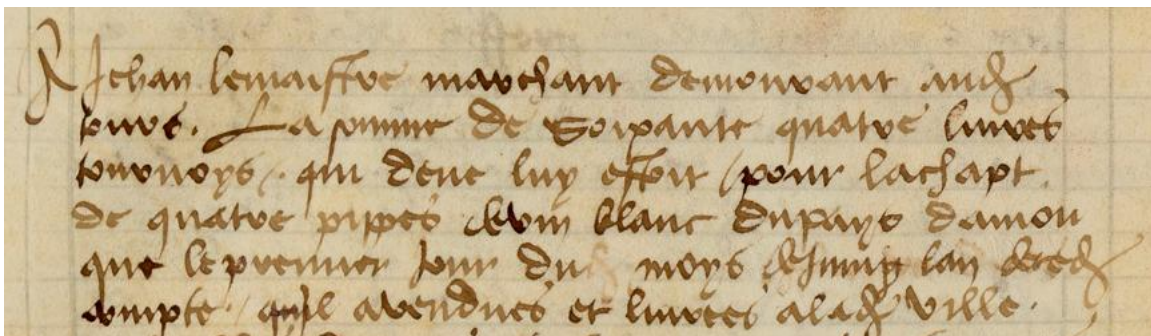 A Jehan lemaistre marchant demourant aud
tours. La somme de Soixante quatre livres
tournoys. qui deue luy estoit / pour lachapt
de quatre pippes devin blanc dupays damou
que lepremier jour dud moys dejuing lan deced
compte / quil avendues et livrees alad ville.